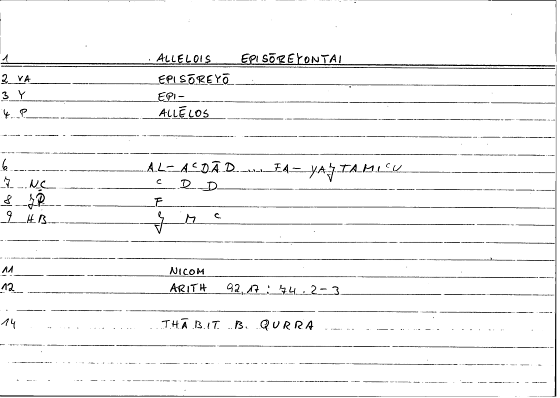 1 ALLELOIS EPISŌREYONTAI
2 VA EPISŌREYŌ
3 Y EPI-
4 P ALLĒLOS
6 AL-ACDĀD ... FA-YAǦTAMICU
7 NC C D D
8 F
9 HB Ǧ M C
11 NICOM
12 ARITH 92,17 : 74.2-3
14 THĀBIT B. QURRA